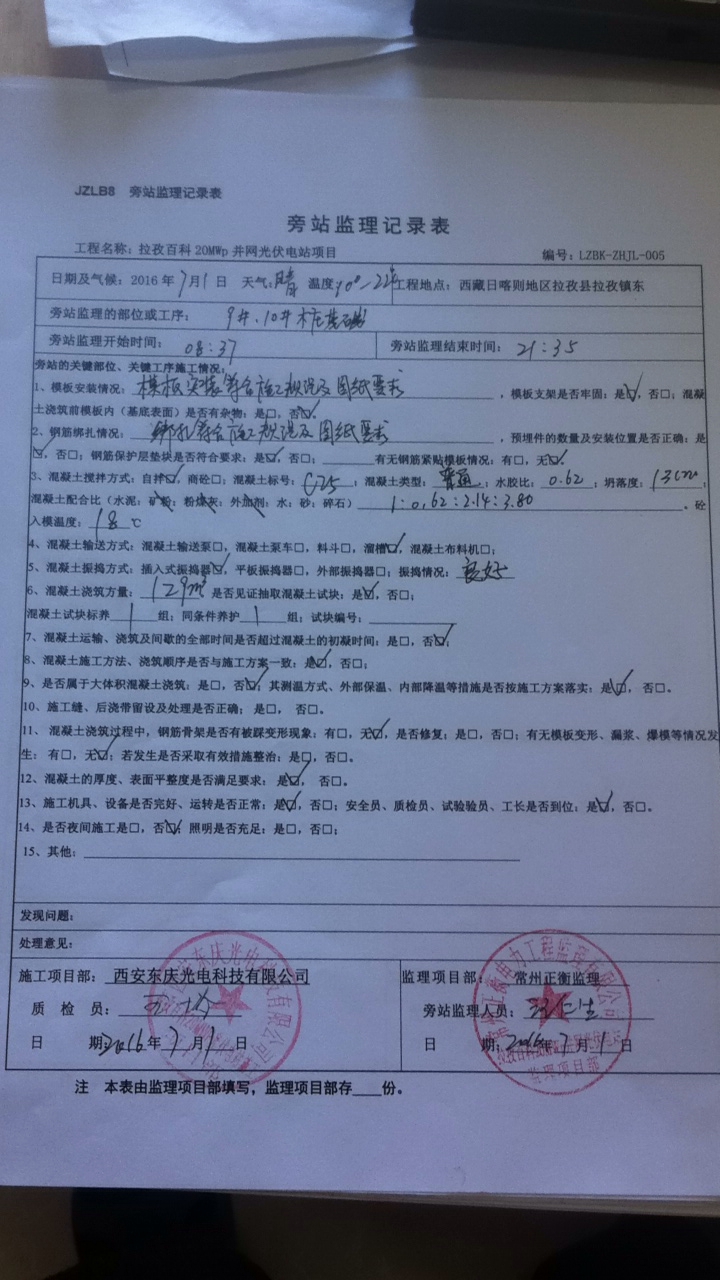 JZLB8 旁站监理记录表
旁站监理记录表
工程名称：拉孜百科20MWp并网光伏电站项目 编号：LZBK-ZHJL-005
日期及气候：2016年7月1日 天气：晴 温度 10°—22° 工程地点：西藏日喀则地区拉孜县拉孜镇东
旁站监理的部位或工序： 9#、10#桩基础
旁站监理开始时间： 08:37 旁站监理结束时间： 21:35
旁站的关键部位、关键工序施工情况：
1、模板安装情况：模板安装符合施工规范及图纸要求，模板支架是否牢固：是☑，否□；混凝
土浇筑前模板内（基底表面）是否有杂物：是□，否☑。
2、钢筋绑扎情况：绑扎符合施工规范及图纸要求，预埋件的数量及安装位置是否正确：是
☑，否□；钢筋保护层垫块是否符合要求：是☑，否□； 有无钢筋紧贴模板情况：有□，无☑。
3、混凝土搅拌方式：自拌☑，商砼□；混凝土标号：C25；混凝土类型：普通；水胶比：0.62；坍落度：13cm；
混凝土配合比（水泥：矿粉：粉煤灰：外加剂：水：砂：碎石） 1:0.62:2.14:3.80。砼
入模温度：18℃
4、混凝土输送方式：混凝土输送泵□，混凝土泵车□，料斗□，溜槽☑，混凝土布料机□；
5、混凝土振捣方式：插入式振捣器☑，平板振捣器□，外部振捣器□；振捣情况：良好
6、混凝土浇筑方量：129m³ 是否见证抽取混凝土试块：是☑，否□；
混凝土试块标养 1 组；同条件养护 1 组；试块编号：
7、混凝土运输、浇筑及间歇的全部时间是否超过混凝土的初凝时间：是□，否☑；
8、混凝土施工方法、浇筑顺序是否与施工方案一致：是☑，否□；
9、是否属于大体积混凝土浇筑：是□，否☑；其测温方式、外部保温、内部降温等措施是否按施工方案落实：是☑，否□。
10、施工缝、后浇带留设及处理是否正确：是□， 否□。
11、混凝土浇筑过程中，钢筋骨架是否有被踩变形现象：有□，无☑，是否修复：是□，否□；有无模板变形、漏浆、爆模等情况发
生：有□，无☑；若发生是否采取有效措施整治：是□，否□。
12、混凝土的厚度、表面平整度是否满足要求：是☑， 否□。
13、施工机具、设备是否完好、运转是否正常：是☑，否□；安全员、质检员、试验验员、工长是否到位：是☑，否□。
14、是否夜间施工是□，否☑；照明是否充足：是□，否□；
15、其他：
发现问题：
处理意见：
施工项目部：西安东庆光电科技有限公司 监理项目部：常州正衡监理
质检员： 旁站监理人员：
日期：2016年7月1日 日期：2016年7月1日
注 本表由监理项目部填写，监理项目部存 份。